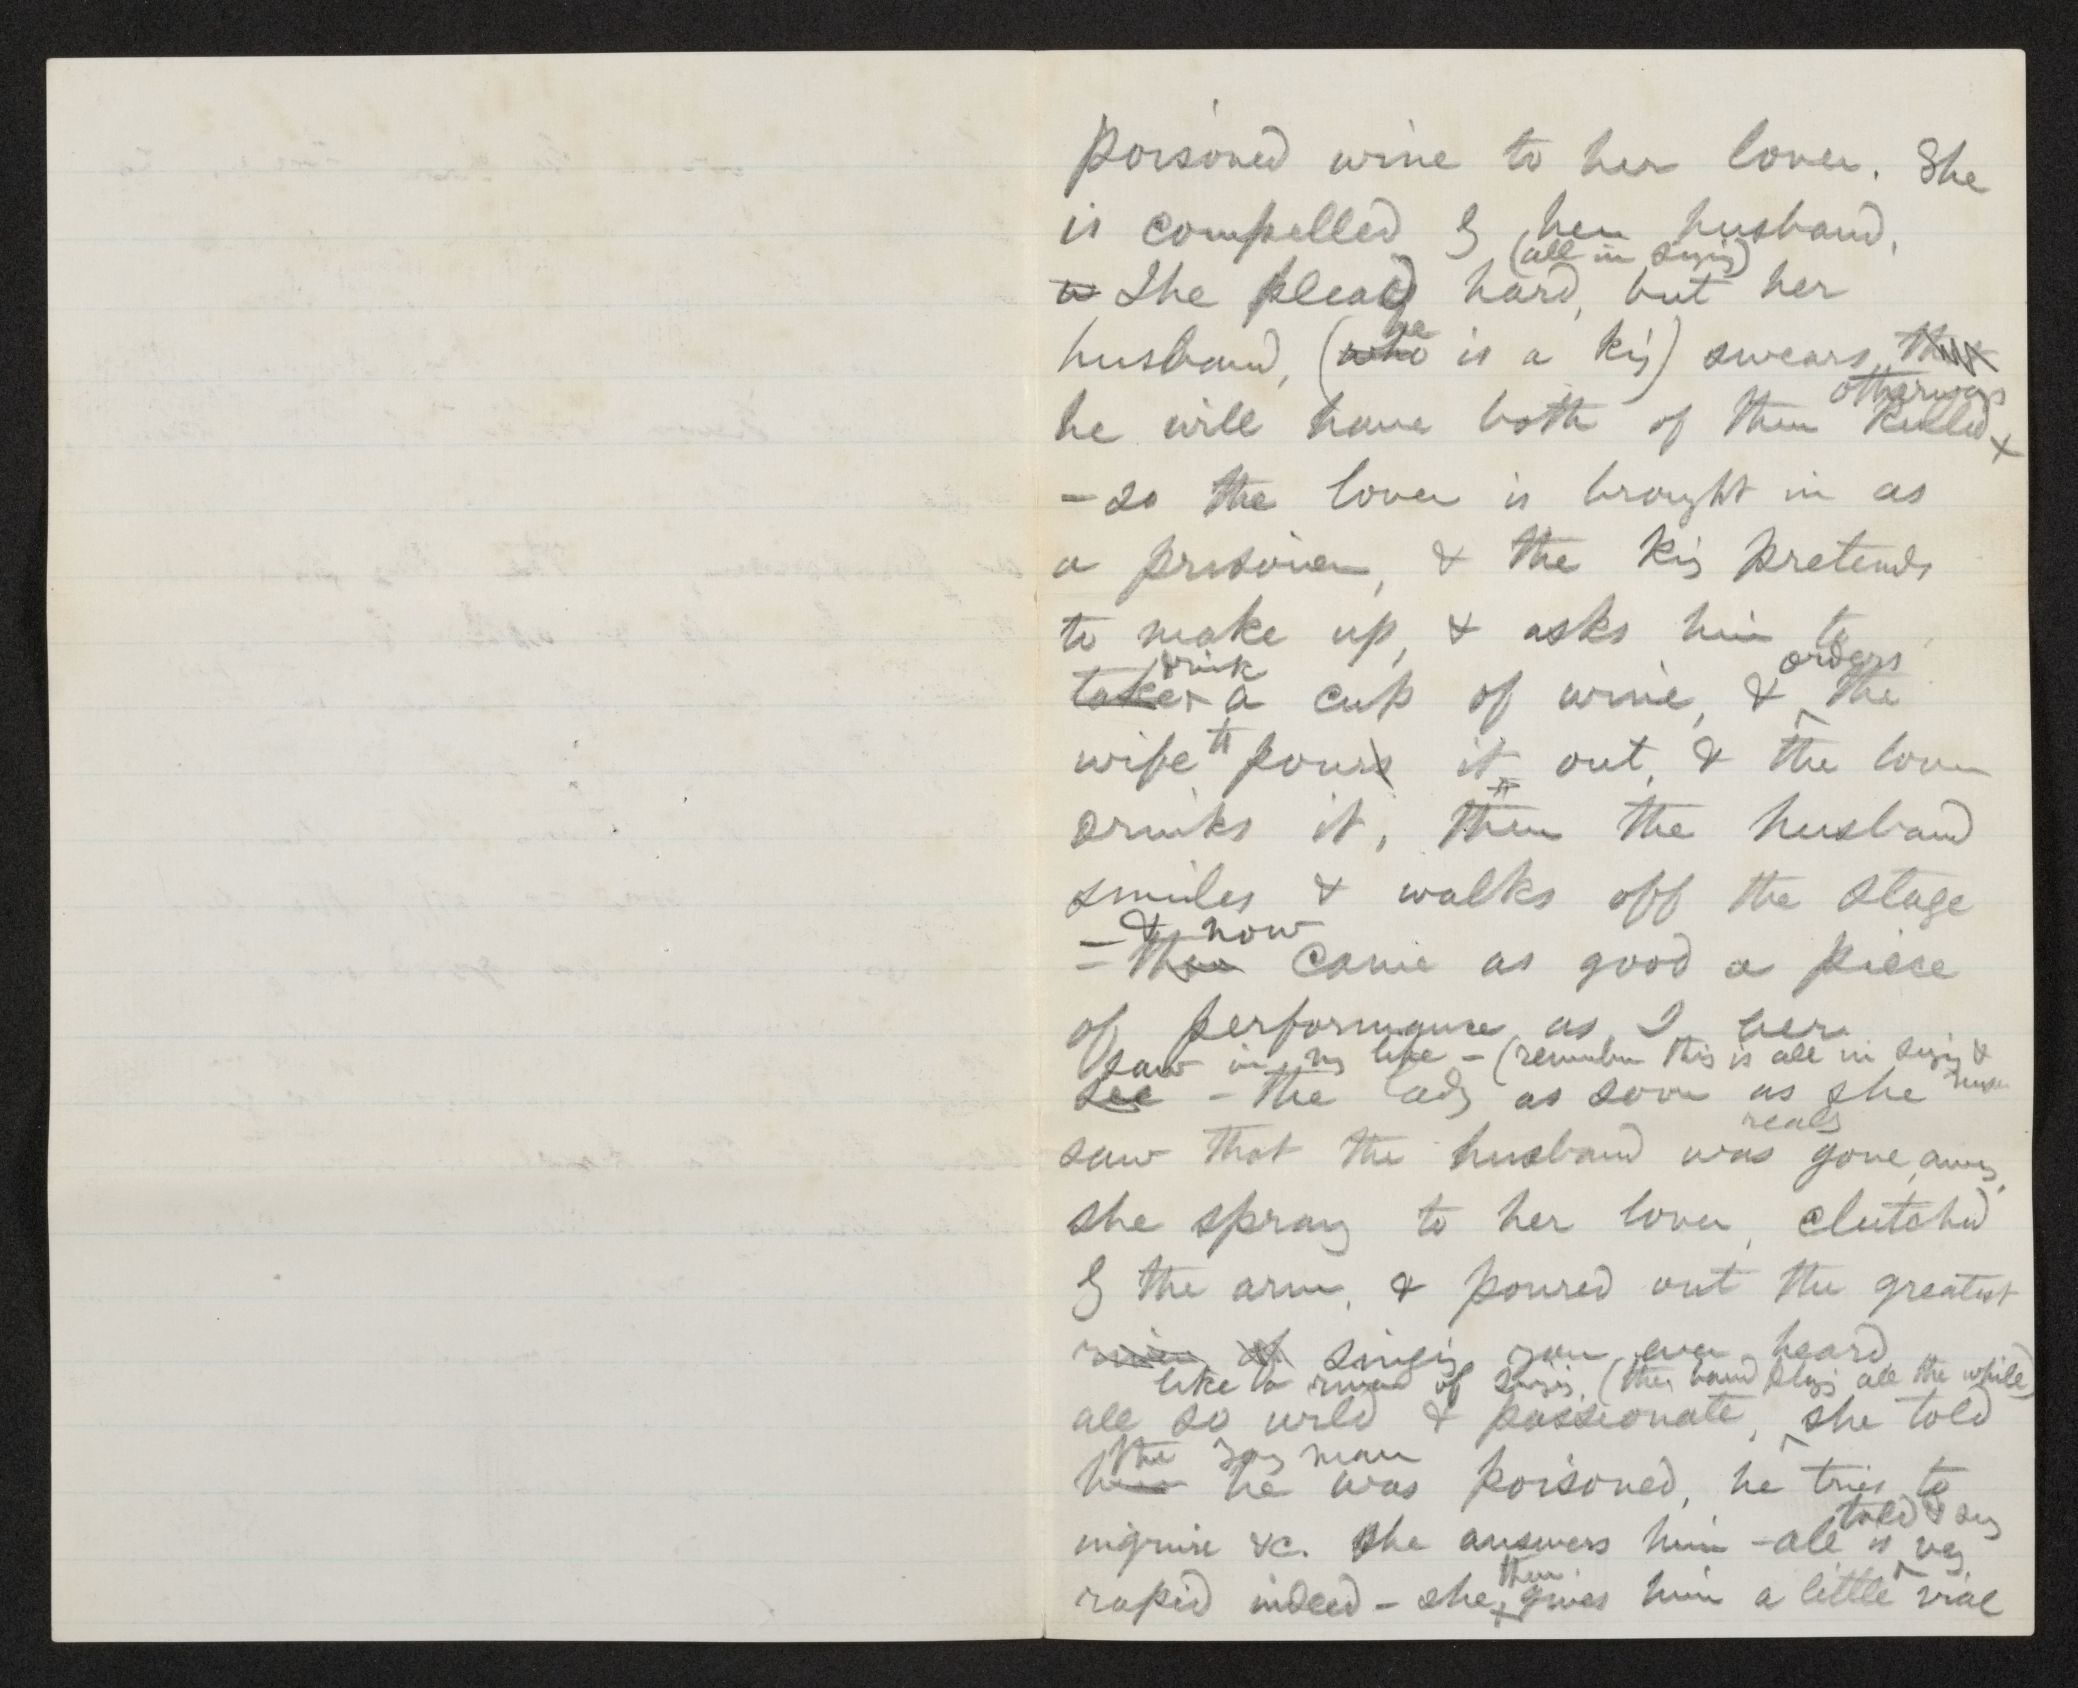 poisoned wine to her lover. She
is compelled by her husband.
(all in singing)
w She pleads hard, but her
he
husband, (who is a king) swears that
otherways
he will have both of them killed
– so the lover is brought in as
a prisoner, & the king pretends
to make up, & asks him to
drink orders
take a cup of wine, & the
wife to pours it out, & the lover
drinks it, then the husband
smiles & walks off the stage
– & now
– then came as good a piece
of performance as I ever
saw in my life – (remember this is all in singing & music
see – the lady as soon as she
really
saw that the husband was gone away,
she sprang to her lover, clutched
by the arm, & poured out the greatest
singing you ever heard
like a of singing. (the band plays all the while)
all so wild & passionate, she told
the young man
him he was poisoned, he tries to
told & sung
inquire &c. she answers him – all is very
then
rapid indeed – she gives him a little vial